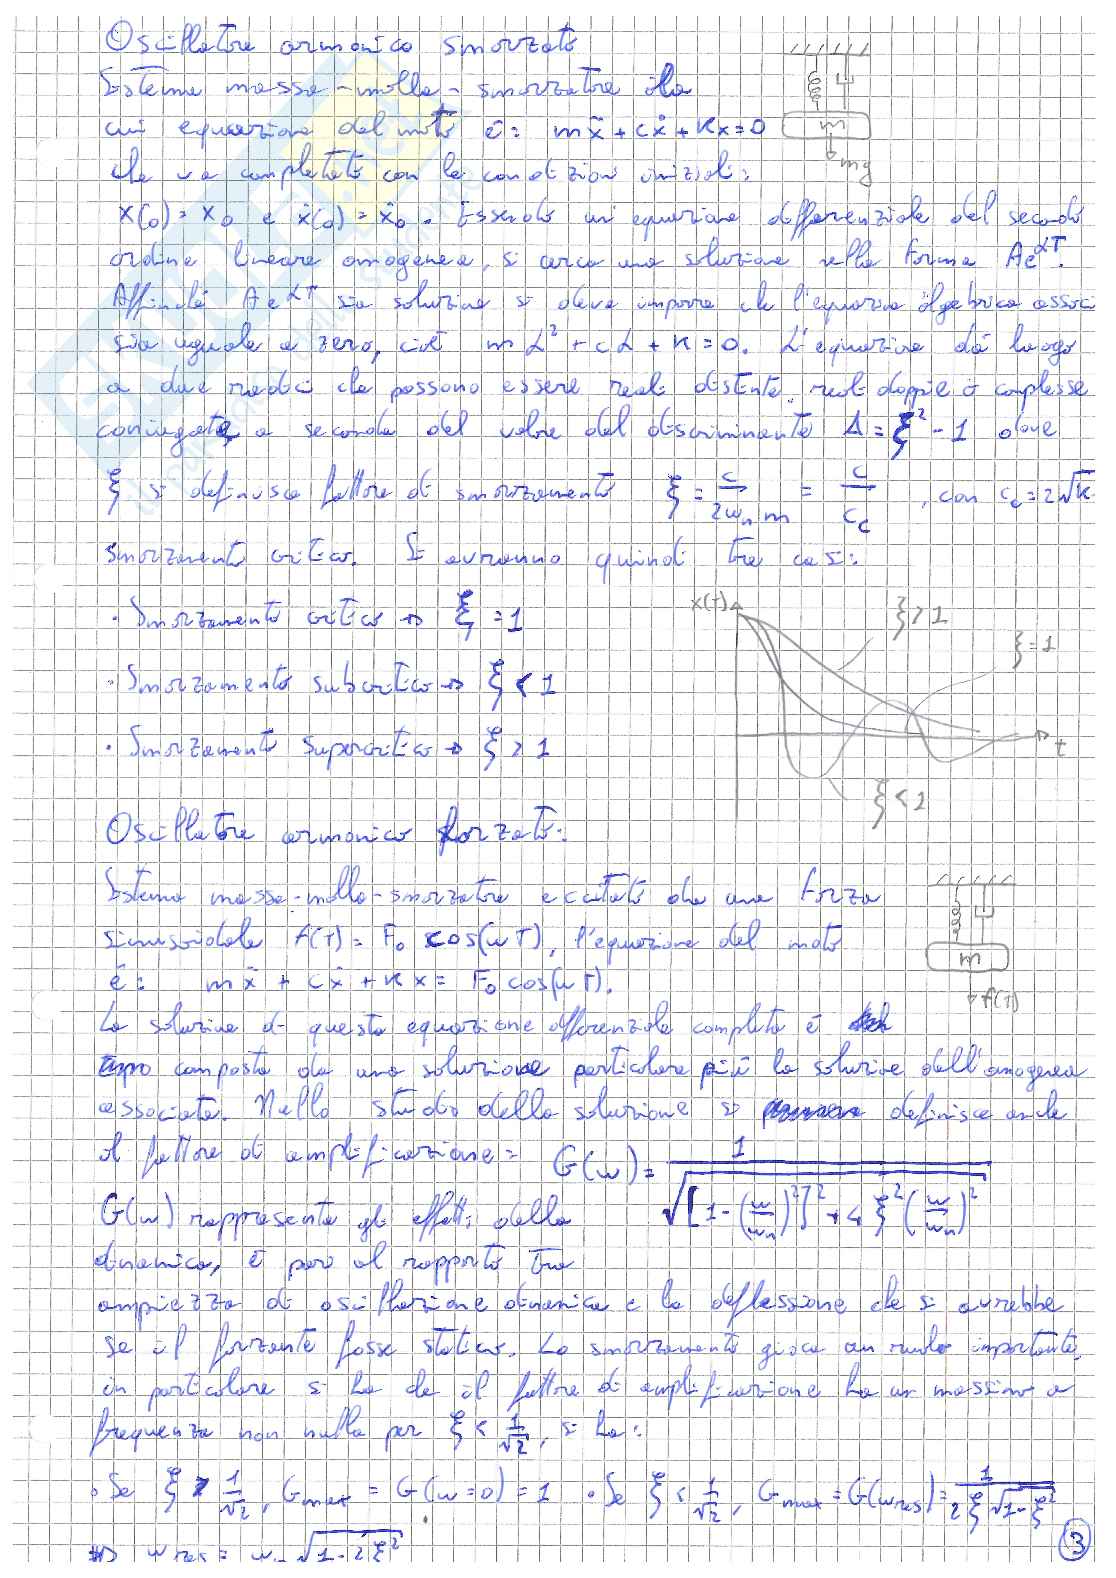 Oscillatore armonico smorzato
Sistema massa-molla-smorzatore la
cui equazione del moto è: mẍ + cẋ + Kx = 0
m
mg
che va completata con le condizioni iniziali:
x(0) = x₀ e ẋ(0) = ẋ₀. Essendo un'equazione differenziale del secondo
ordine lineare omogenea, si cerca una soluzione nella forma Ae^αT.
Affinché Ae^αT sia soluzione si deve imporre che l'equazione algebrica associ
sia uguale a zero, cioè mα² + cα + K = 0. L'equazione dà luogo
a due radici che possono essere reali distinte, reali doppie o complesse
coniugate a seconda del valore del discriminante Δ = ξ² - 1 dove
ξ si definisce fattore di smorzamento ξ = c/(2ωₙm) = c/c_c, con c_c = 2√K
smorzamento critico. Si avranno quindi tre casi:
· Smorzamento critico → ξ = 1
· Smorzamento subcritico → ξ < 1
· Smorzamento supercritico → ξ > 1
x(T)
ξ > 1
ξ = 1
t
ξ < 1
Oscillatore armonico forzato:
Sistema massa-molla-smorzatore eccitato da una forza
sinusoidale f(T) = F₀ cos(ωT), l'equazione del moto
è: mẍ + cẋ + Kx = F₀ cos(ωT).
m
f(T)
La soluzione di questa equazione differenziale completa è
composta da una soluzione particolare più la soluzione dell'omogenea
associata. Nello studio della soluzione si definisce anche
il fattore di amplificazione: G(ω) = 1/√([1-(ω/ωₙ)²]² + 4ξ²(ω/ωₙ)²)
G(ω) rappresenta gli effetti della
dinamica, è pari al rapporto tra
ampiezza di oscillazione dinamica e la deflessione che si avrebbe
se il forzante fosse statico. Lo smorzamento gioca un ruolo importante,
in particolare si ha che il fattore di amplificazione ha un massimo a
frequenza non nulla per ξ < 1/√2, si ha:
· Se ξ > 1/√2, Gmax = G(ω=0) = 1 · Se ξ < 1/√2, Gmax = G(ωres) = 1/(2ξ√(1-ξ²))
⇒ ωres = ωₙ √(1-2ξ²)
3